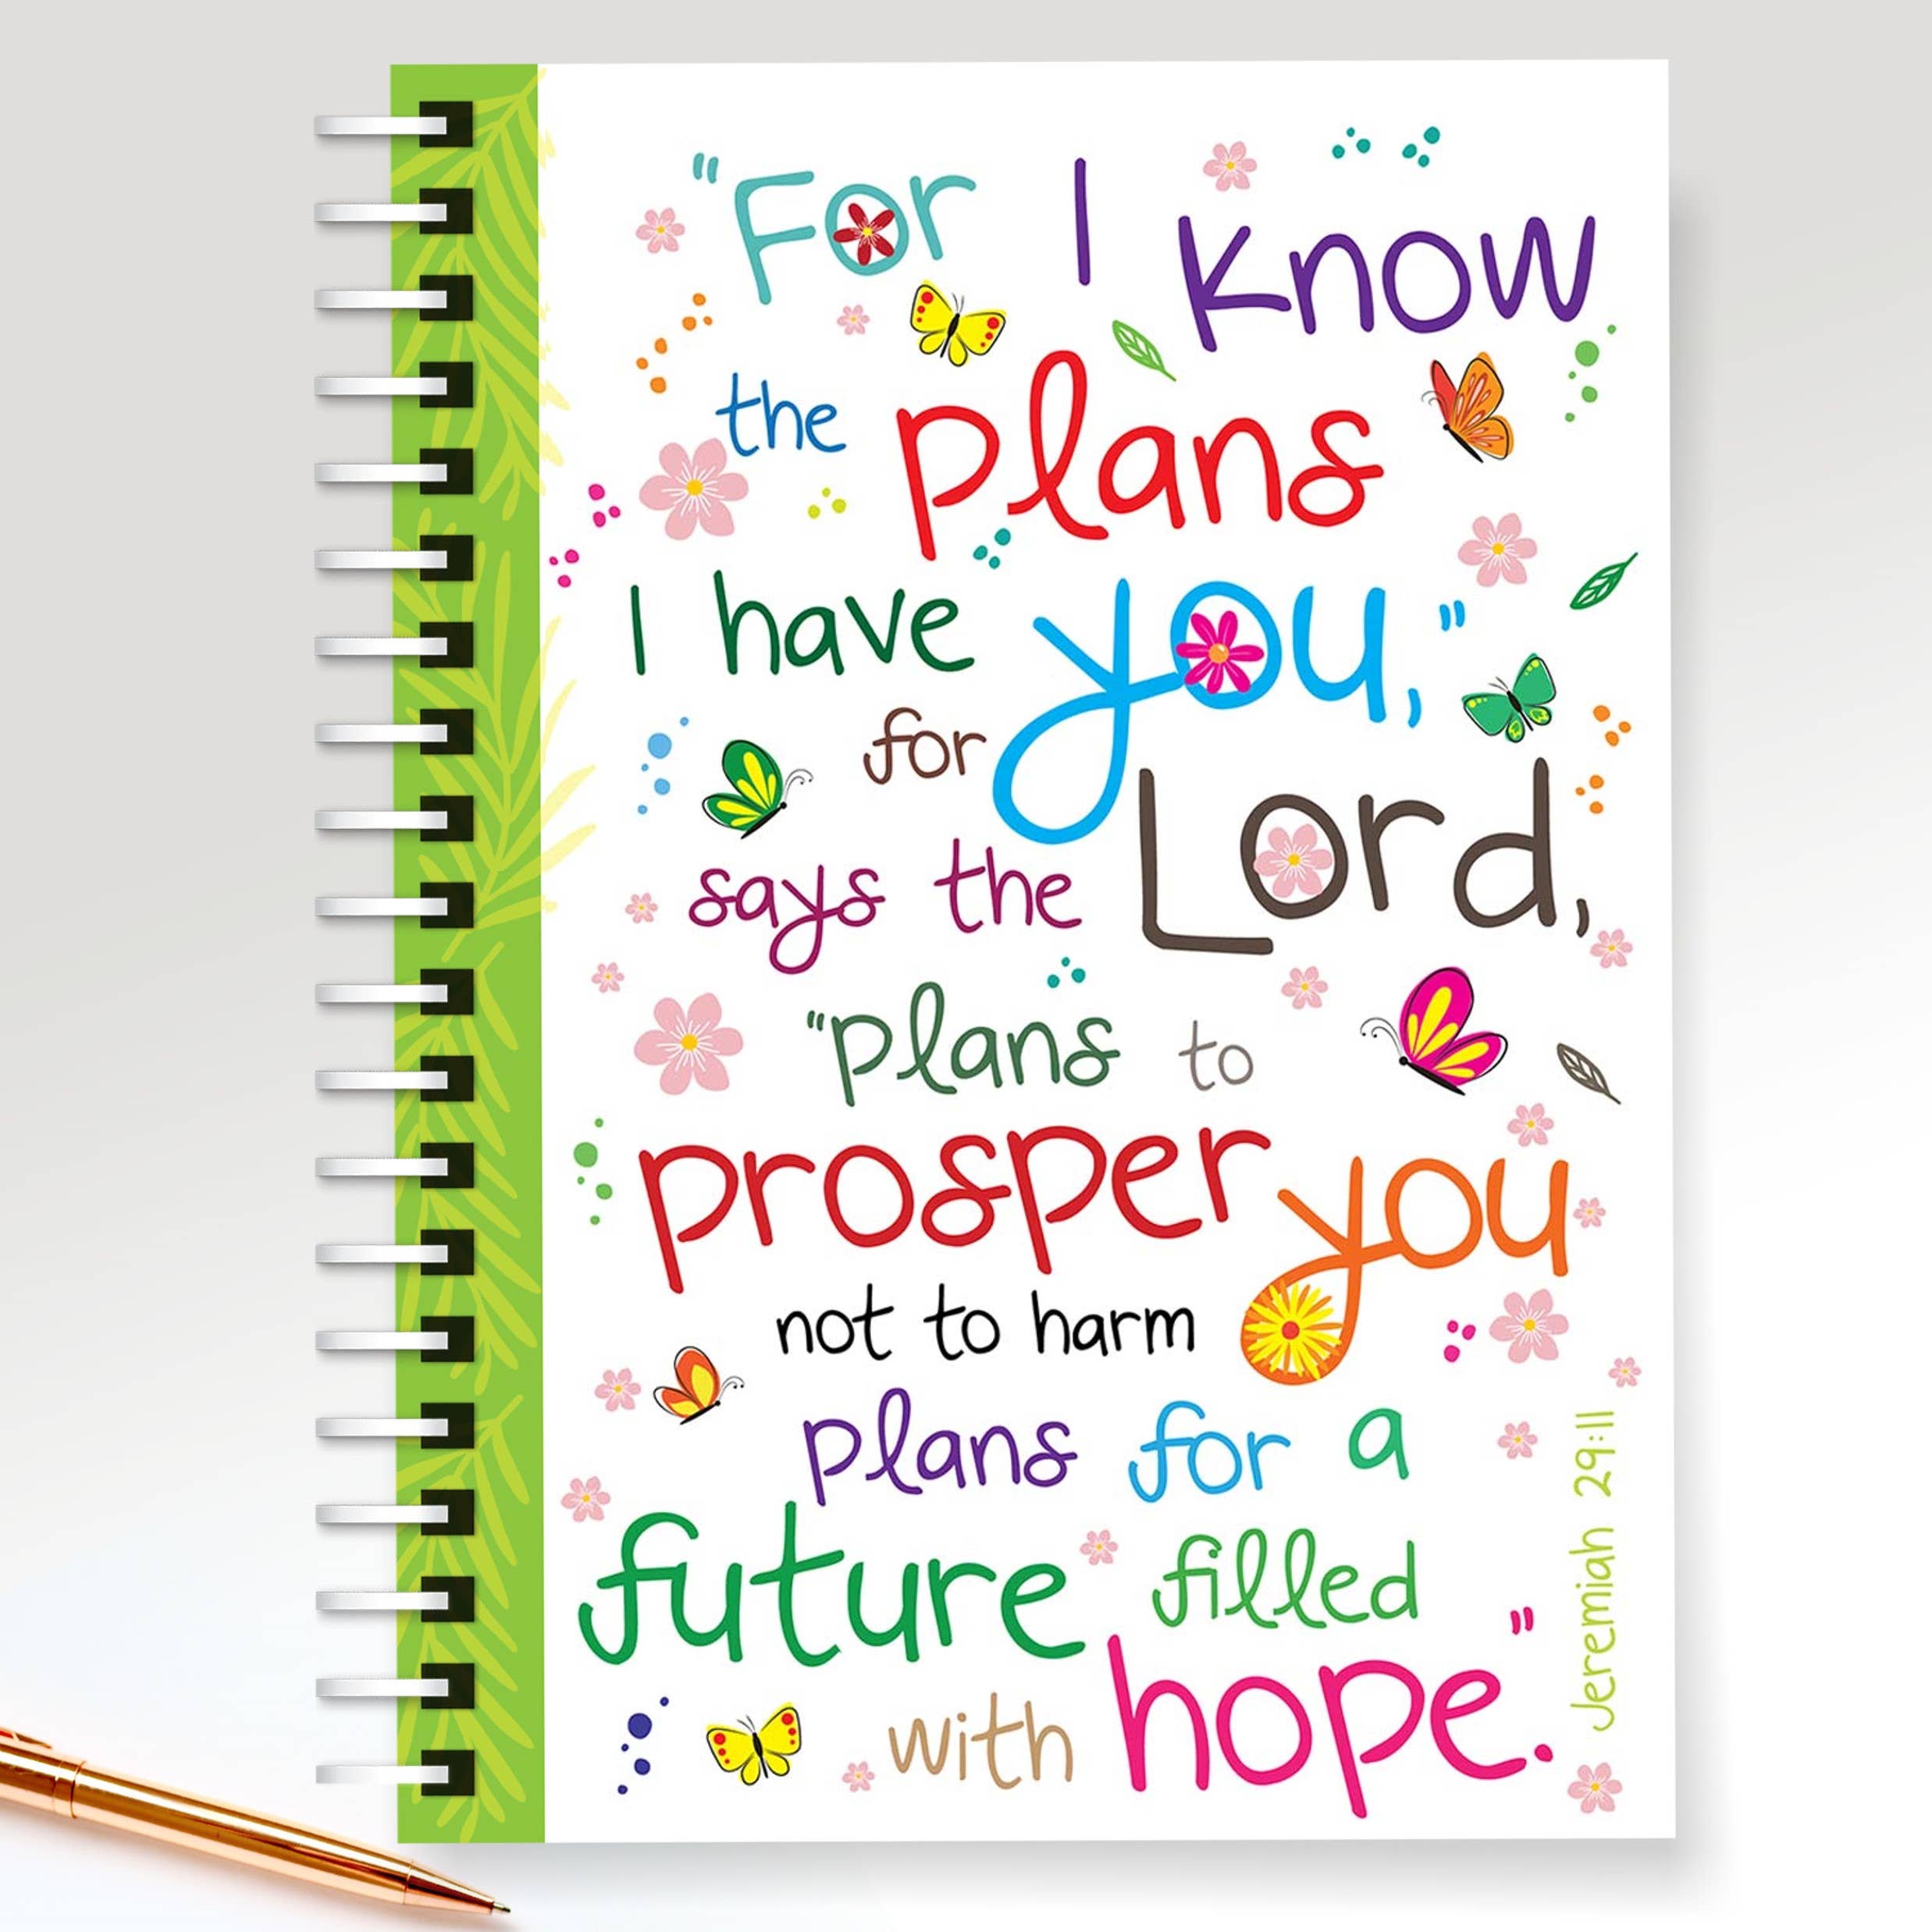 "For I know
the plans
I have you,"
for
says the Lord,
"plans to
prosper you
not to harm
plans for a
future filled
with hope."
Jeremiah 29:11